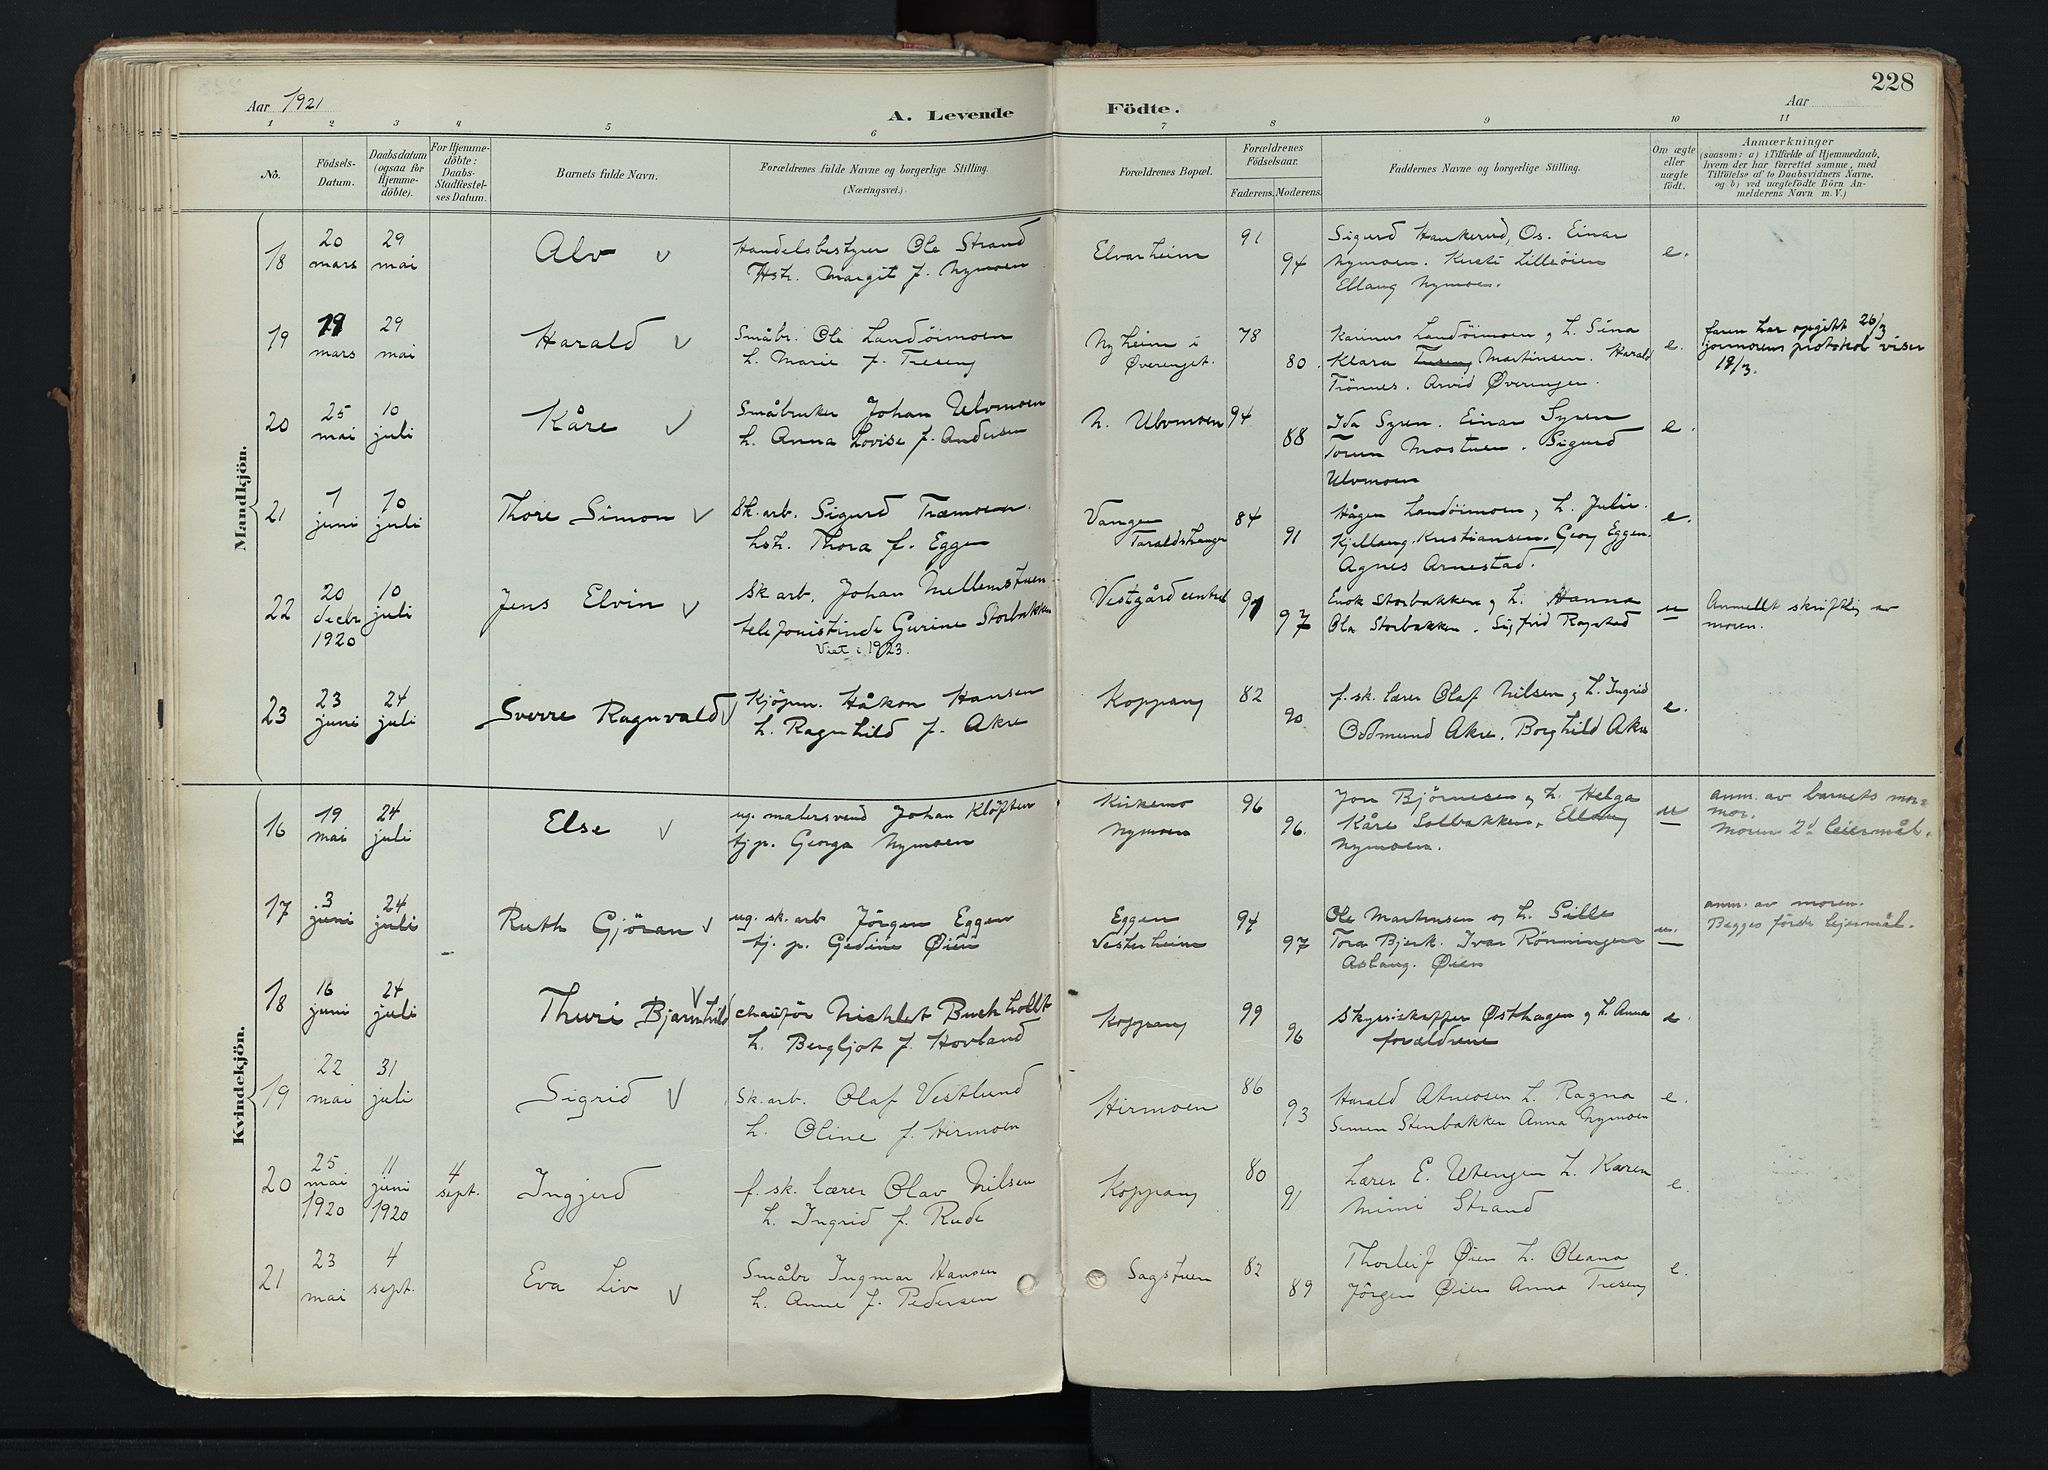 228
Aar 1921
A. Levende
Födte.
Aar
1 2 3 4 5 6 7 8 9 10 11
No.
Födsels-
Datum.
Daabsdatum
(ogsaa for
Hjemme-
döbte).
For Hjemme-
döbte:
Daabs-
Stadfæstel-
ses Datum.
Barnets fulde Navn.
Forældrenes fulde Navne og borgerlige Stilling.
(Næringsvei.)
Forældrenes Bopæl.
Forældrenes
Födselsaar.
Faderens. Moderens.
Faddernes Navne og borgerlige Stilling.
Om ægte
eller
uægte
födt.
Anmærkninger
(saasom: a) i Tilfælde af Hjemmedaab,
hvem der har forrettet samme, med
Tilföielse af to Daabsvidners Navne,
og b) ved uægtefödte Börn An-
melderens Navn m. V.)
Mandkjön.
18 20 mars 29 mai Alv v
Handelsbestyrer Ole Strand
Hstr. Margit f. Nymoen
Elvarheim 91 94
Sigurd Haukerud, Os. Einar
Nymoen. Kirsti Lilleöien
Ellaug Nymoen.
e.
19 19 mars 29 mai Harald v
Småbr. Ole Landöimoen
h. Marie f. Treseng
Nyheim i
Øverenget.
78 80.
Karinus Landöimoen, h. Sina
Klara Martinsen. Harald
Trönnes. Arvid Øverengen.
e.
faren har opgitt 26/3
jormorens protokol viser
19/3.
20 25 mai 10 juli Kåre v
Småbruker Johan Ulvmoen
h. Anna Lovise f. Andersen
N. Ulvmoen 94 88
Ida Syren. Einar Syren
Torun Mostuen. Sigurd
Ulvmoen
e.
21 1 juni 10 juli Thore Simon v
Sk. arb. Sigurd Træmoen.
hstr. Thora f. Eggen
Vangen
84 91
Hågen Landöimoen, h. Julie.
Kjellaug Kristiansen. Georg Eggen.
Agnes Arnestad.
e.
22 20 decbr 1920 10 juli Jens Elvin v
Sk arb. Johan Mellemstuen
telefonistinde Gurine Storbakken
Viet i 1923.
Vestgård central 91 97
Enok Storbakken og h. Hanna
Ola Storbakken. Sigfrid Rogstad
u
Anmeldt skriftlig av
moren.
23 23 juni 24 juli Sverre Ragnvald v
Kjöpm. Håkon Hansen
h. Ragnhild f. Akre
Koppang 82 90
f. sk. lærer Olaf Nilsen og h. Ingrid
Oddmund Akre. Borghild Akre
e.
Kvindekjön.
16 19 mai 24 juli Else v
ug. malersvend Johan Klöften
tj.p. Georga Nymoen
Kirkemo
Nymoen
96 96.
Jon Björnesen og h. Helga
Kåre Solbakken, Ellaug
Nymoen.
u
anm. av barnets mor-
mor.
Moren 2d leiermål.
17 3 juni 24 juli Ruth Gjöran v
ug. sk. arb Jörgen Eggen
tj. p. Gedine Øien
Eggen
Vesterheim
94 97
Ole Martinsen og h. Sille
Tora Bjerk. Ivar Rönningen
Aslaug Øien
u.
anm. av moren.
Begges förste lejermål.
18 16 juni 24 juli Thuri Bjarnhild v
chauför Nichlet Buchholdt
h. Bergljot f. Hovland
Koppang 99 96
Skysskaffer Østhagen og h. Anna
forældrene
e
19 22 mai 31 juli Sigrid v
Sk. arb. Olaf Vestlund
h. Oline f. Hirmoen
Hirmoen 86 93
Harald Atneosen h. Ragna
Simen Stenbakken Anna Nymoen
e.
20 25 mai 1920 11 juni 1920 4 sept. Ingjerd
f. sk. lærer Olav Nilsen
h. Ingrid f. Rude
Koppang 80 91
Lærer E. Utengen h. Karen
Mimi Strand
e.
21 23 mai 4 sept. Eva Liv v
Småbr Ingmar Hansen
h. Anne f. Pedersen
Sagstuen 82 89
Thorleif Øien h. Oleana
Jörgen Øien Anna Treseng
e.